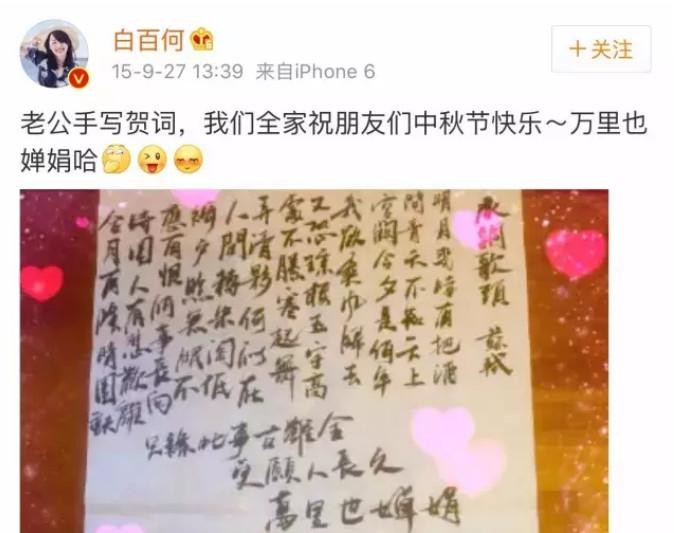 白百何
15-9-27 13:39 来自iPhone 6
+关注
老公手写贺词，我们全家祝朋友们中秋节快乐～万里也
婵娟哈
水調歌頭 蘇軾
明月幾時有把酒
問青天不知天上
宮闕今夕是何年
我欲乘風歸去
又恐琼楼玉宇高
處不勝寒起舞
弄清影何似在
人間轉朱閣低
綺户照無眠不
應有恨何事長向
時圆人有悲歡離
合月有陰晴圆缺
此事古難全
願人長久
萬里也嬋娟